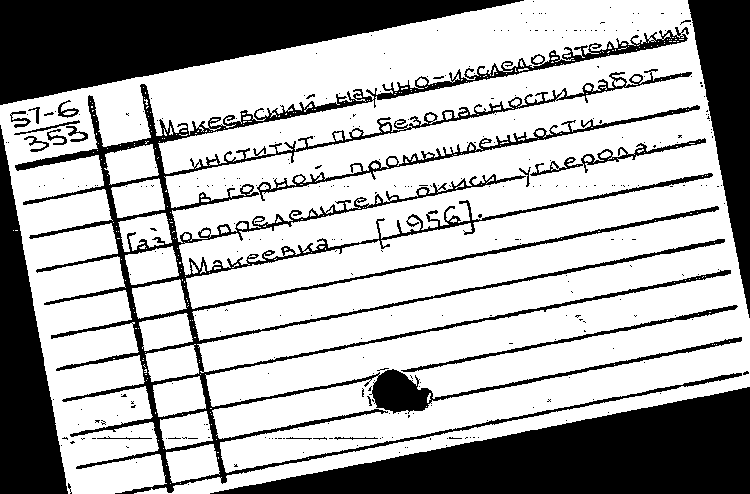 57-6
353
Макеевский научно-исследовательский
институт по безопасности работ
в горной промышленности.
Газоопределитель окиси углерода.
Макеевка, [1956].